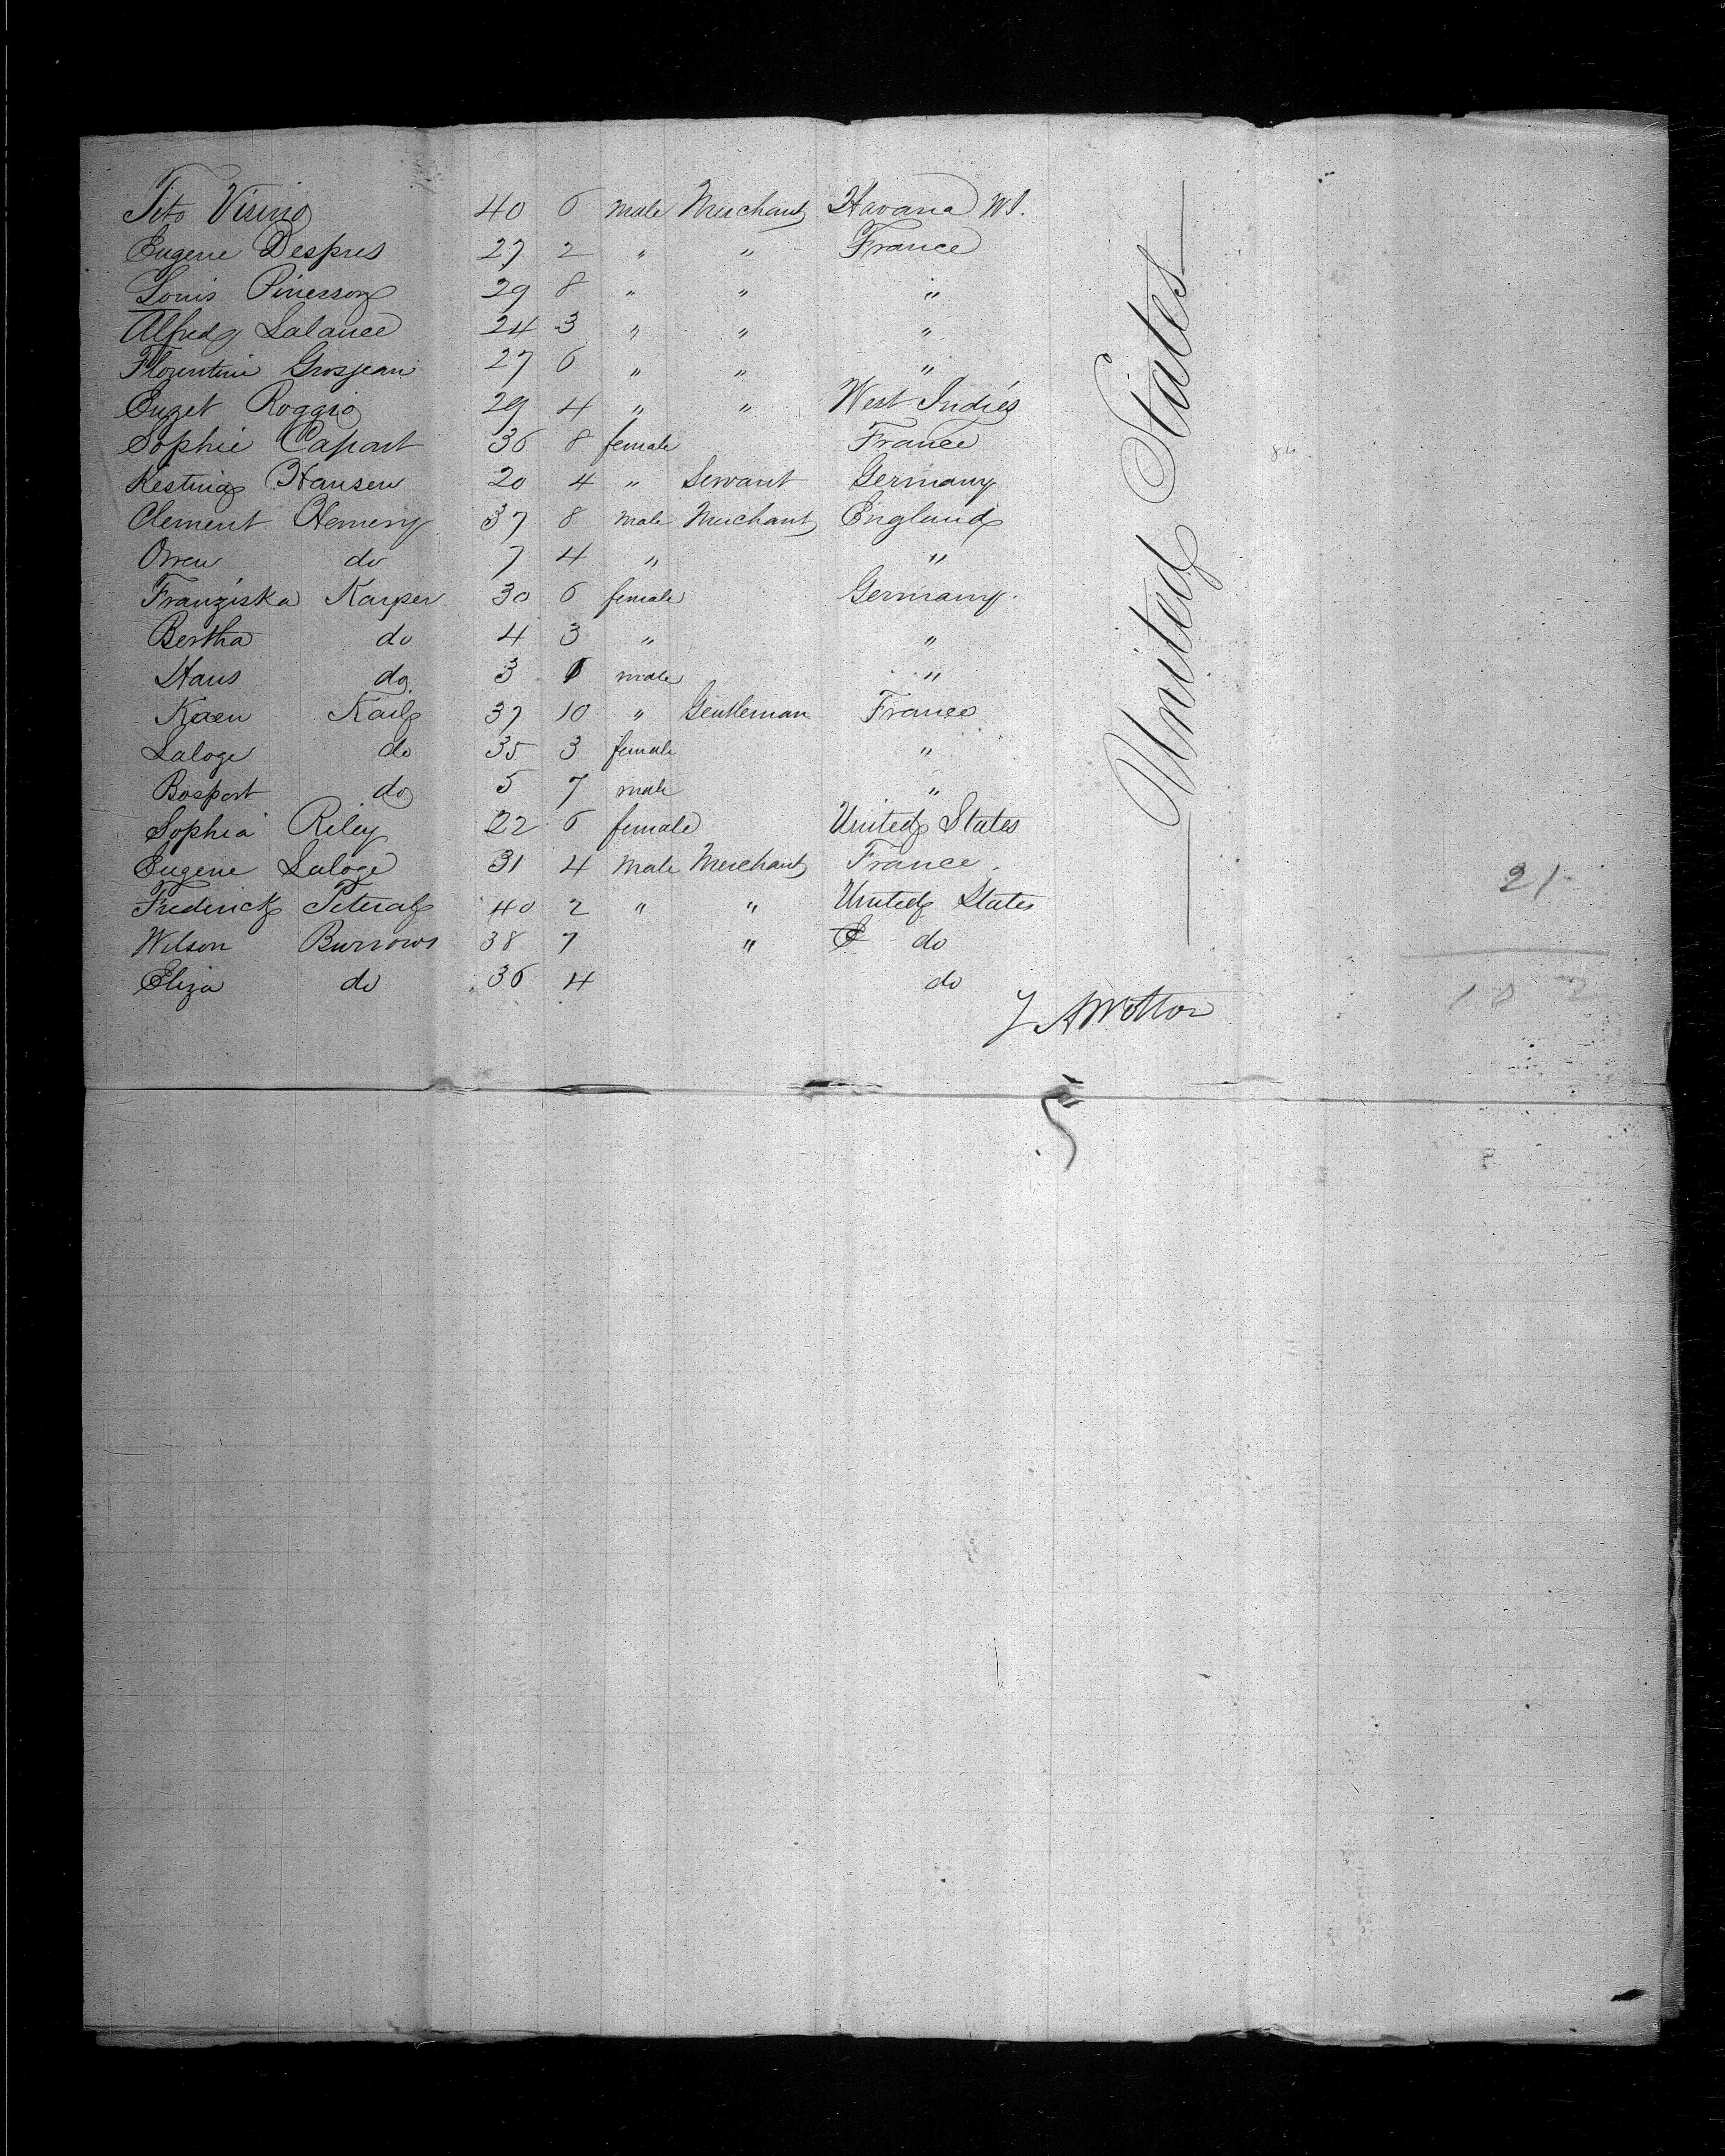 Tito Visino 40 6 male Merchant Havana W I.
Eugene Despres 27 2 " " France
Louis Pinesson 29 8 " " "
Alfred Lalance 24 3 " " "
Florentine Grosjean 27 6 " " "
Enget Roggio 29 4 " " West Indies
Sophie Capart 36 8 female France
Kestina Hansen 20 4 " Servant Germany
Clement Hemery 37 8 male Merchant England
Orren do 7 4 " "
Franziska Karper 30 6 female Germany.
Bertha do 4 3 " "
Hans do 3 male "
Kaen Kail 37 10 " Gentleman France
Laloge do 35 3 female "
Bosport do 5 7 male "
Sophia Riley 22 6 female United States
Eugene Laloge 31 4 male Merchant France.
Frederick 40 2 " " United States
Wilson Burrows 38 7 " do
Eliza do 36 4 do
United States
J A Wotton
21